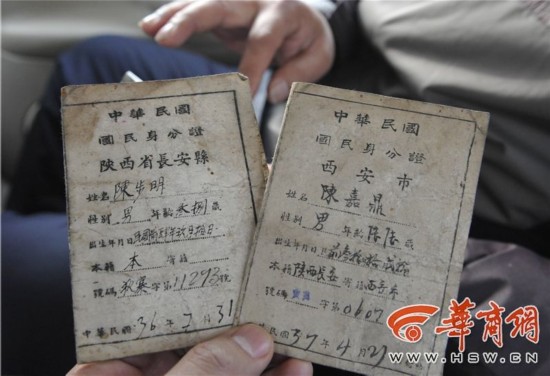 中華民國
國民身分證
陝西省長安縣
姓名 陳生明
性別 男 年齡 歲
出生年月日
本籍 本 寄籍
號碼 字第11293號
中華民國36年 月31
中華民國
國民身分證
西安市
姓名 陳嘉鼎
性別 男 年齡 歲
出生年月日
本籍 陝西長安 寄籍 西安市
號碼 字第0607
中華民國37年4月21
華商網
WWW.HSW.CN